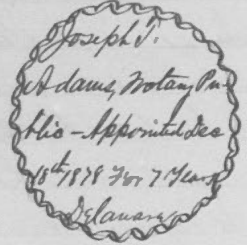 Joseph T.
Adams, Notary Pu-
blic - Appointed Dec
18th 1878 For 7 Years
Delaware